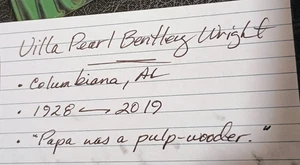 Villa Pearl Bentley Wright
• Columbiana, AL
• 1928 ⟷ 2019
• "Papa was a pulp-wooder."